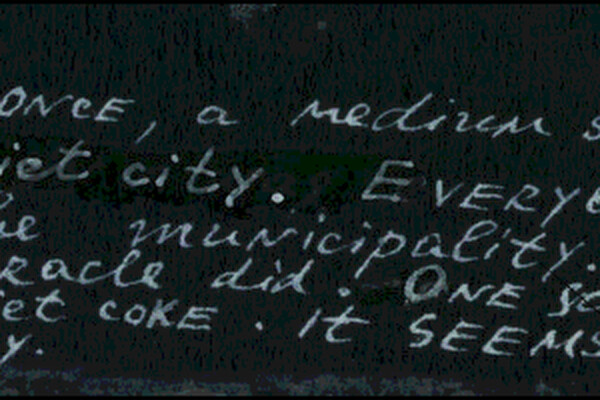 ONCE, a medium s
iet city. EVERY
he municipality.
racle did. ONE so
iet coke. it SEEMS
y.